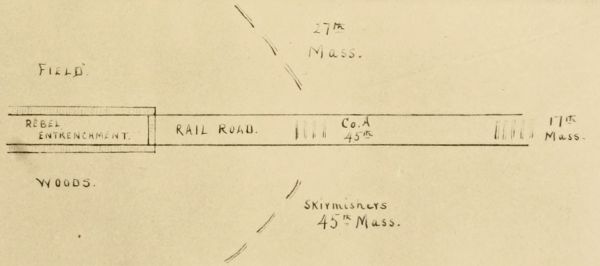 27th
Mass.
FIELD.
REBEL
ENTRENCHMENT.
RAIL ROAD.
Co. A
45th
17th
Mass.
WOODS.
SKIRMISHERS
45th Mass.